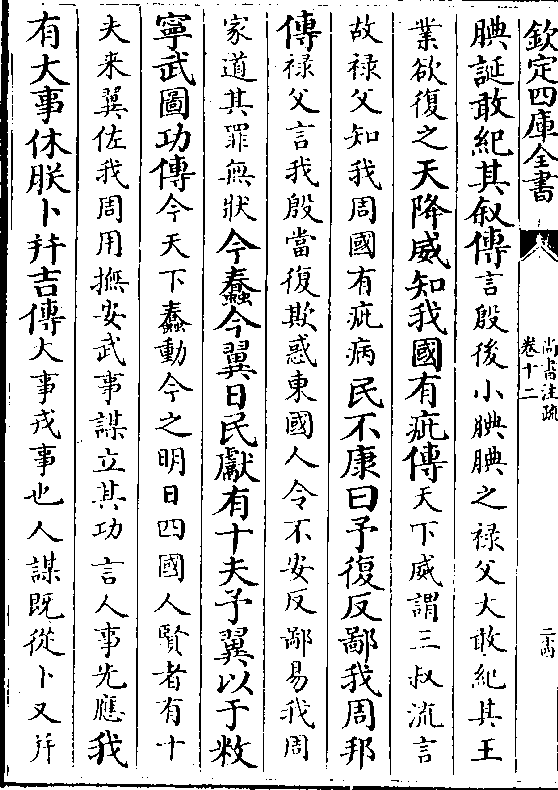 欽定四庫全書
尚書注疏
卷十二
二十四
腆誕敢紀其叙傳言殷後小腆腆之祿父大敢紀其王
業欲復之天降威知我國有疵傳天下威謂三叔流言
故祿父知我周國有疵病民不康曰予復反鄙我周邦
傳祿父言我殷當復欺惑東國人令不安反鄙易我周
家道其罪無狀今蠢今翼日民獻有十夫予翼以于敉
寧武圖功傳今天下蠢動今之明日四國人賢者有十
夫來翼佐我周用撫安武事謀立其功言人事先應我
有大事休朕卜并吉傳大事戎事也人謀既從卜又并